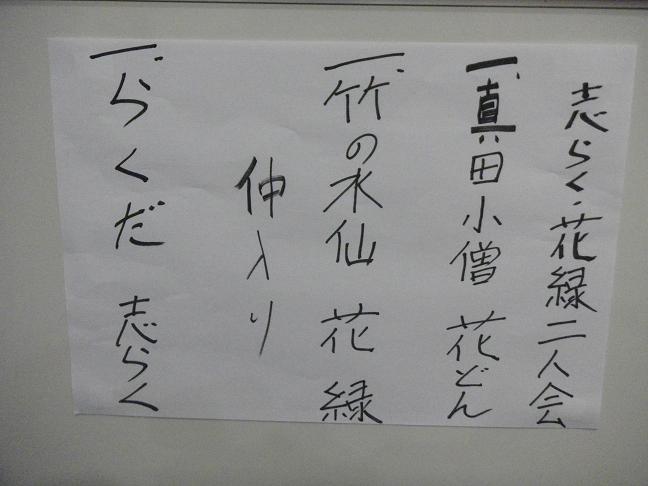 志らく・花緑二人会
一、真田小僧 花どん
一、竹の水仙 花緑
仲入り
一、らくだ 志らく